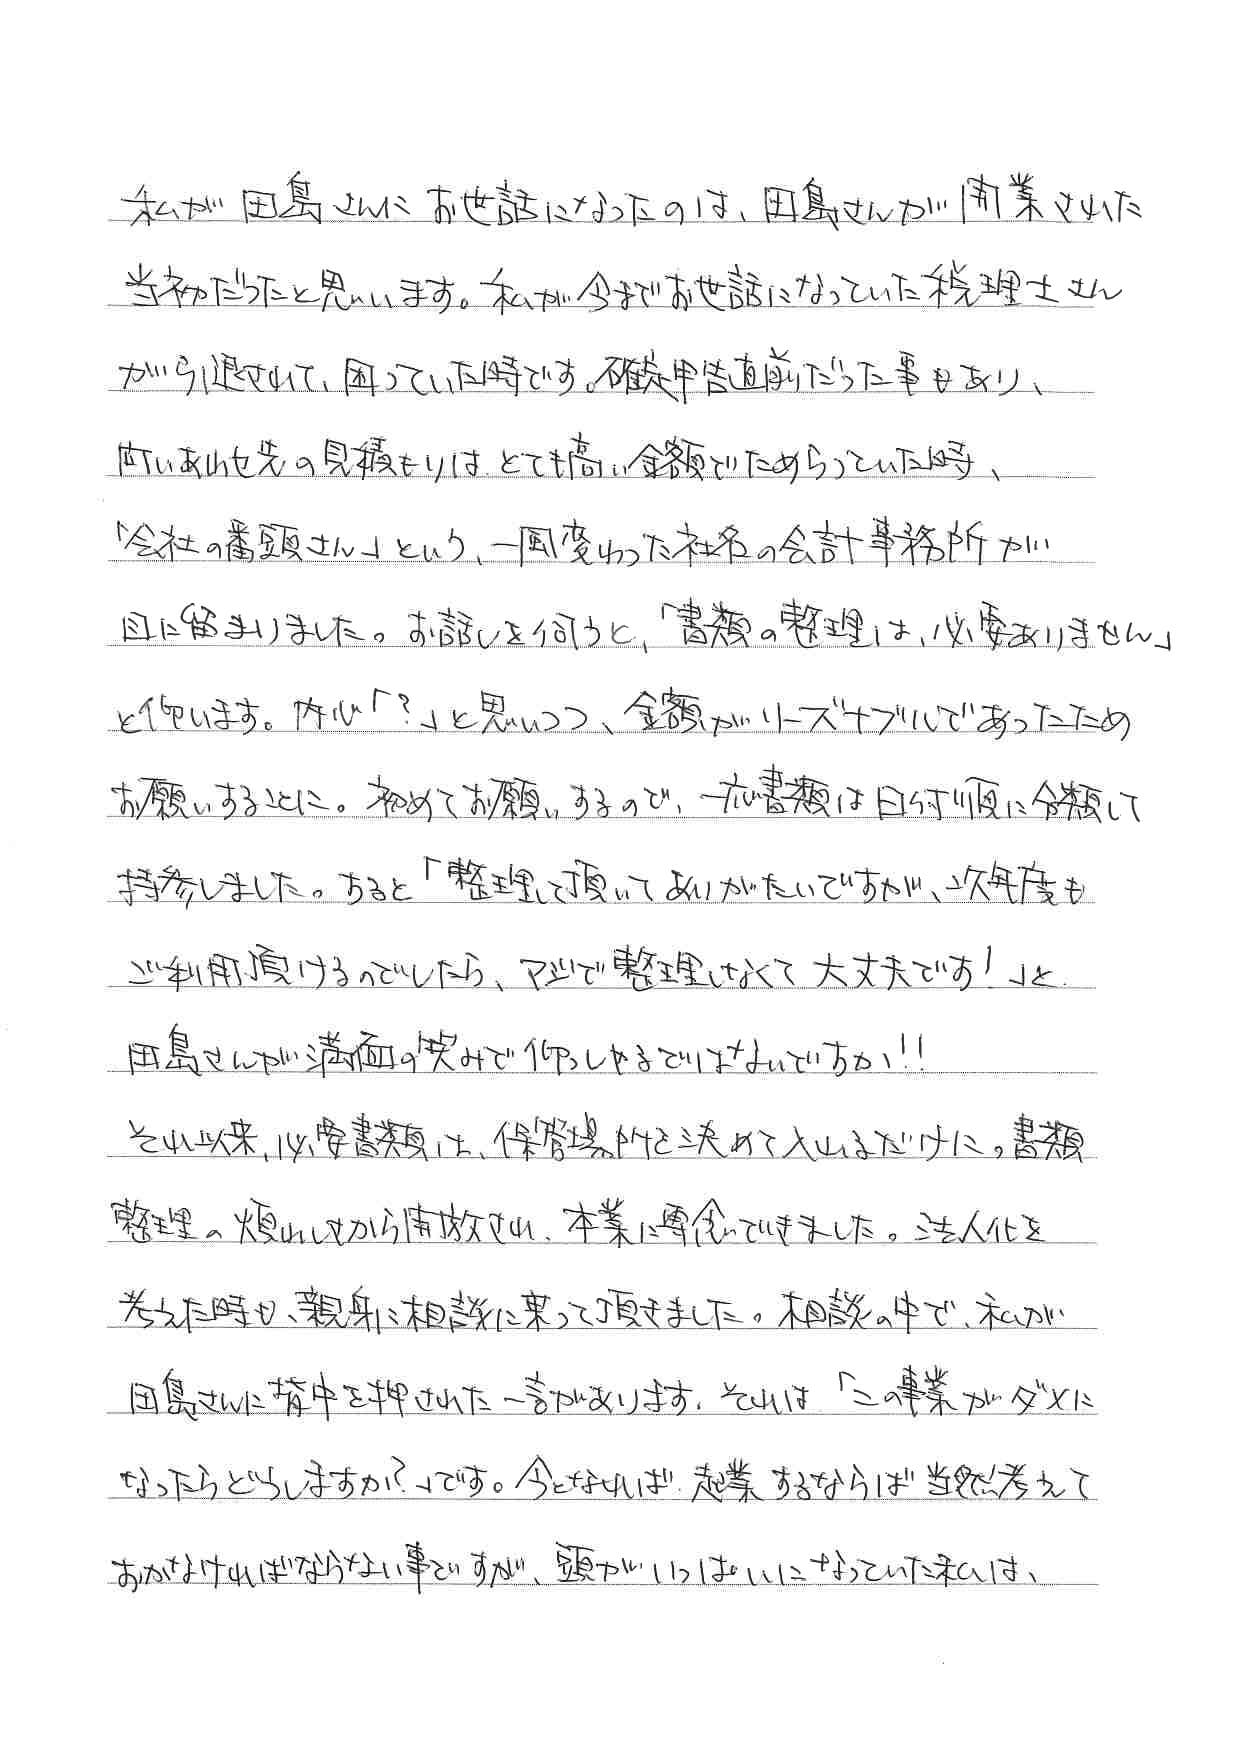 私が田島さんにお世話になったのは、田島さんが開業された
当初だったと思います。私が今までお世話になっていた税理士さん
が引退されて、困っていた時です。確定申告直前だった事もあり、
問い合わせ先の見積もりはとても高い金額でためらっていた時、
「会社の番頭さん」という、一風変わった社名の会計事務所が
目に留まりました。お話しを伺うと、「書類の整理は、必要ありません」
と仰います。内心「?」と思いつつ、金額がリーズナブルであったため
お願いすることに。初めてお願いするので、一応書類は日付順に分類して
持参しました。すると「整理して頂いてありがたいですが、次年度も
ご利用頂けるのでしたら、マジで整理しなくて大丈夫です!」と
田島さんが満面の笑みで仰っしゃるではないですか!!
それ以来、必要書類は、保管場所を決めて入れるだけに。書類
整理の煩わしさから開放され、本業に専念できました。法人化を
考えた時も、親身に相談に乗って頂きました。相談の中で、私が
田島さんに背中を押された一言があります。それは「この事業がダメに
なったらどうしますか?」です。今となれば、起業するならば当然考えて
おかなければならない事ですが、頭がいっぱいになっていた私は、